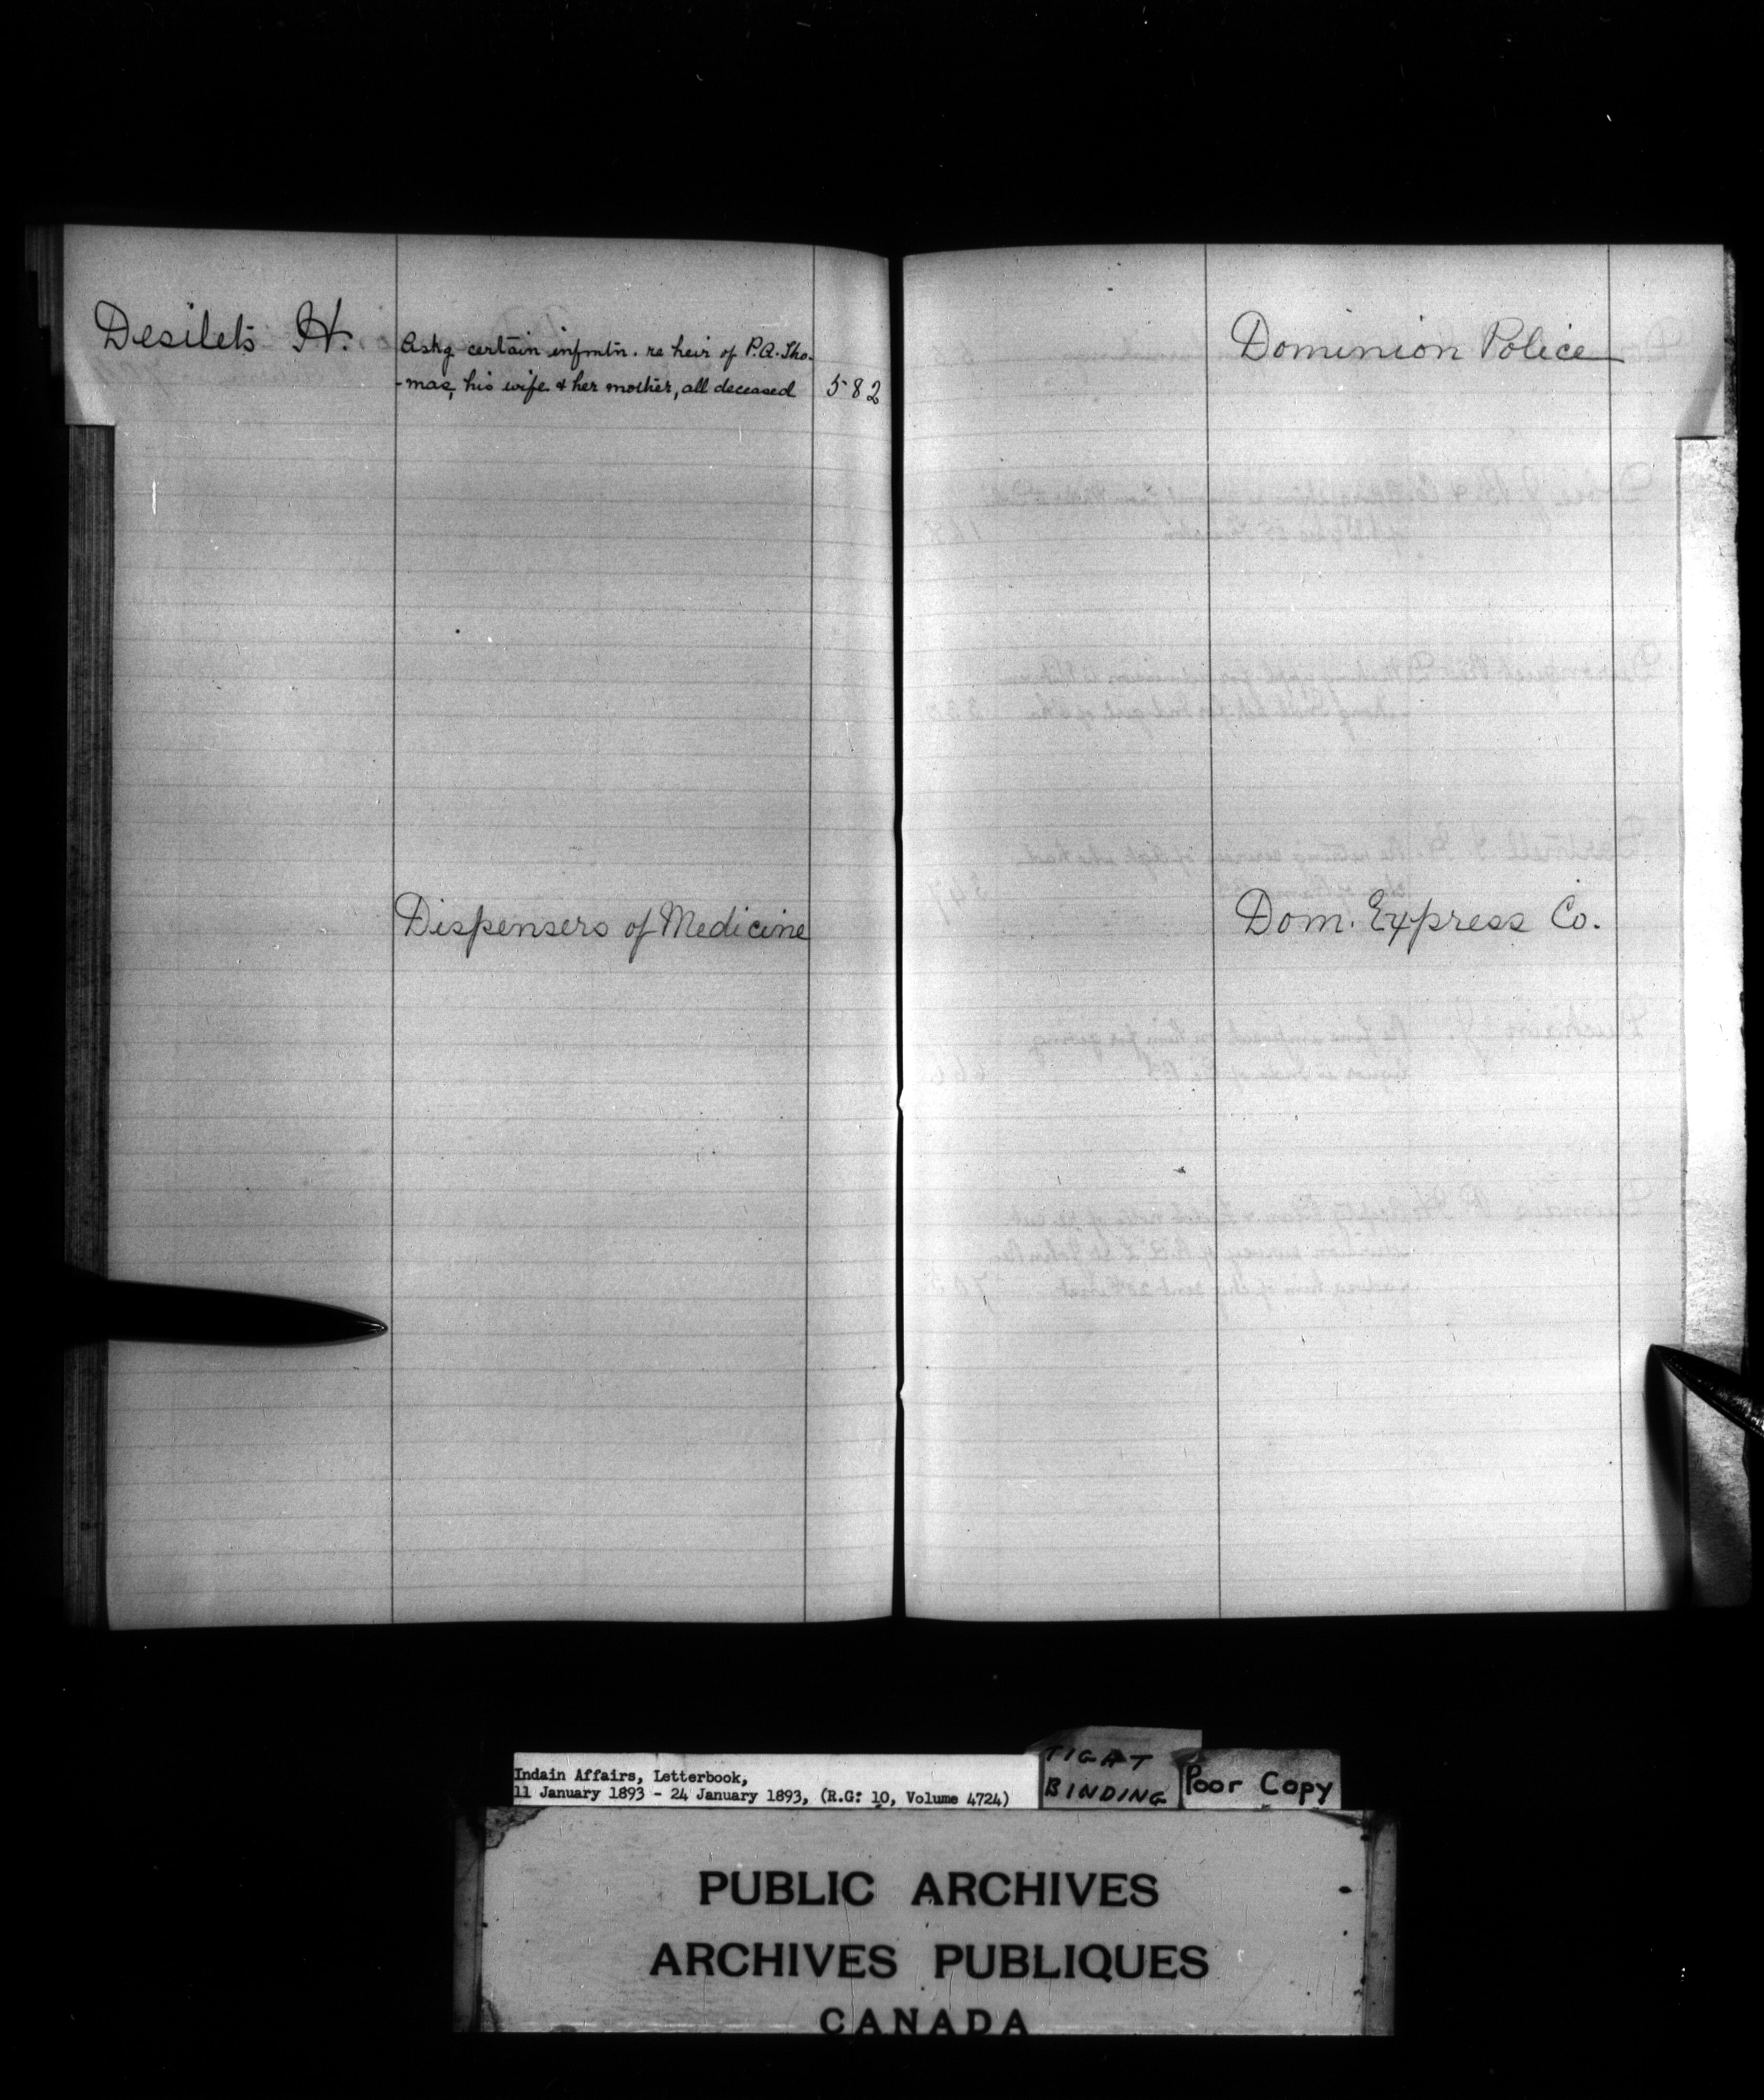 Desilets H.
Askg certain infmtn. re heir of P.A. Tho-
-mas, his wife & her mother, all deceased 582
Dispensers of Medicine
Dominion Police
Dom. Express Co.
Indain Affairs, Letterbook,
11 January 1893 - 24 January 1893, (R.G: 10, Volume 4724)
TIGHT
BINDING
Poor Copy
PUBLIC ARCHIVES
ARCHIVES PUBLIQUES
CANADA